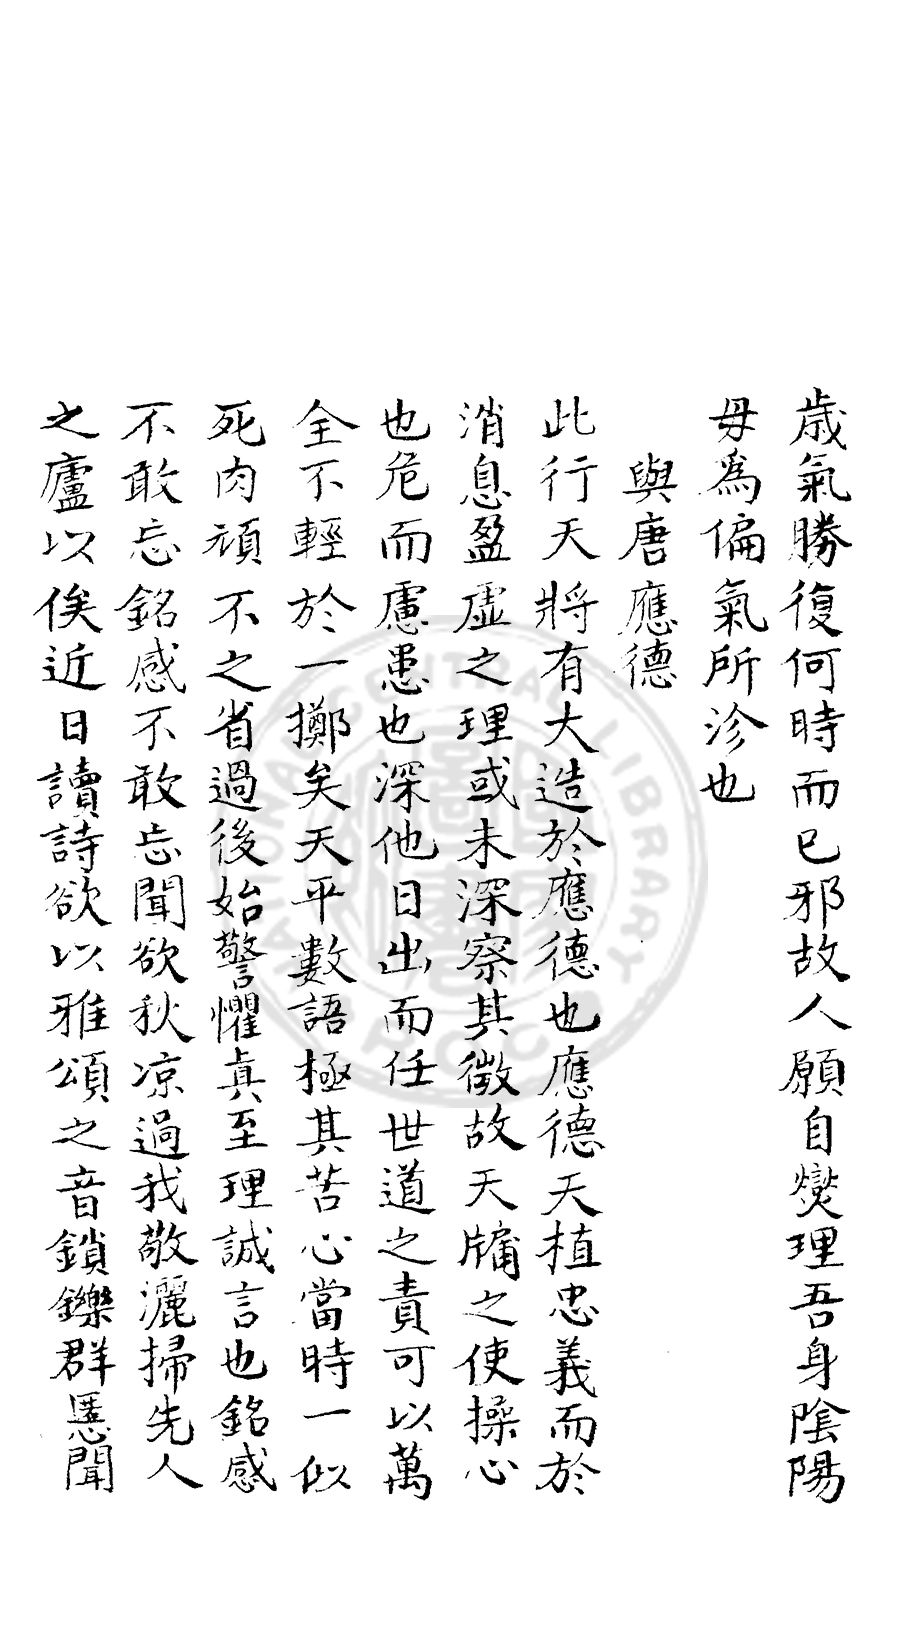 歳氣勝復何時而已邪故人願自燮理吾身陰陽
毋爲偏氣所沴也
與唐應德
此行天將有大造於應德也應德天植忠義而於
消息盈虛之理或未深察其微故天牖之使操心
也危而慮患也深他日出而任世道之責可以萬
全不輕於一擲矣天平數語極其苦心當時一似
死肉頑不之省過後始警懼真至理誠言也銘感
不敢忘銘感不敢忘聞欲秋凉過我敬灑掃先人
之廬以俟近日讀詩欲以雅頌之音鎖鑠群慝聞
NATIONAL CENTRAL LIBRARY
R.O.C.